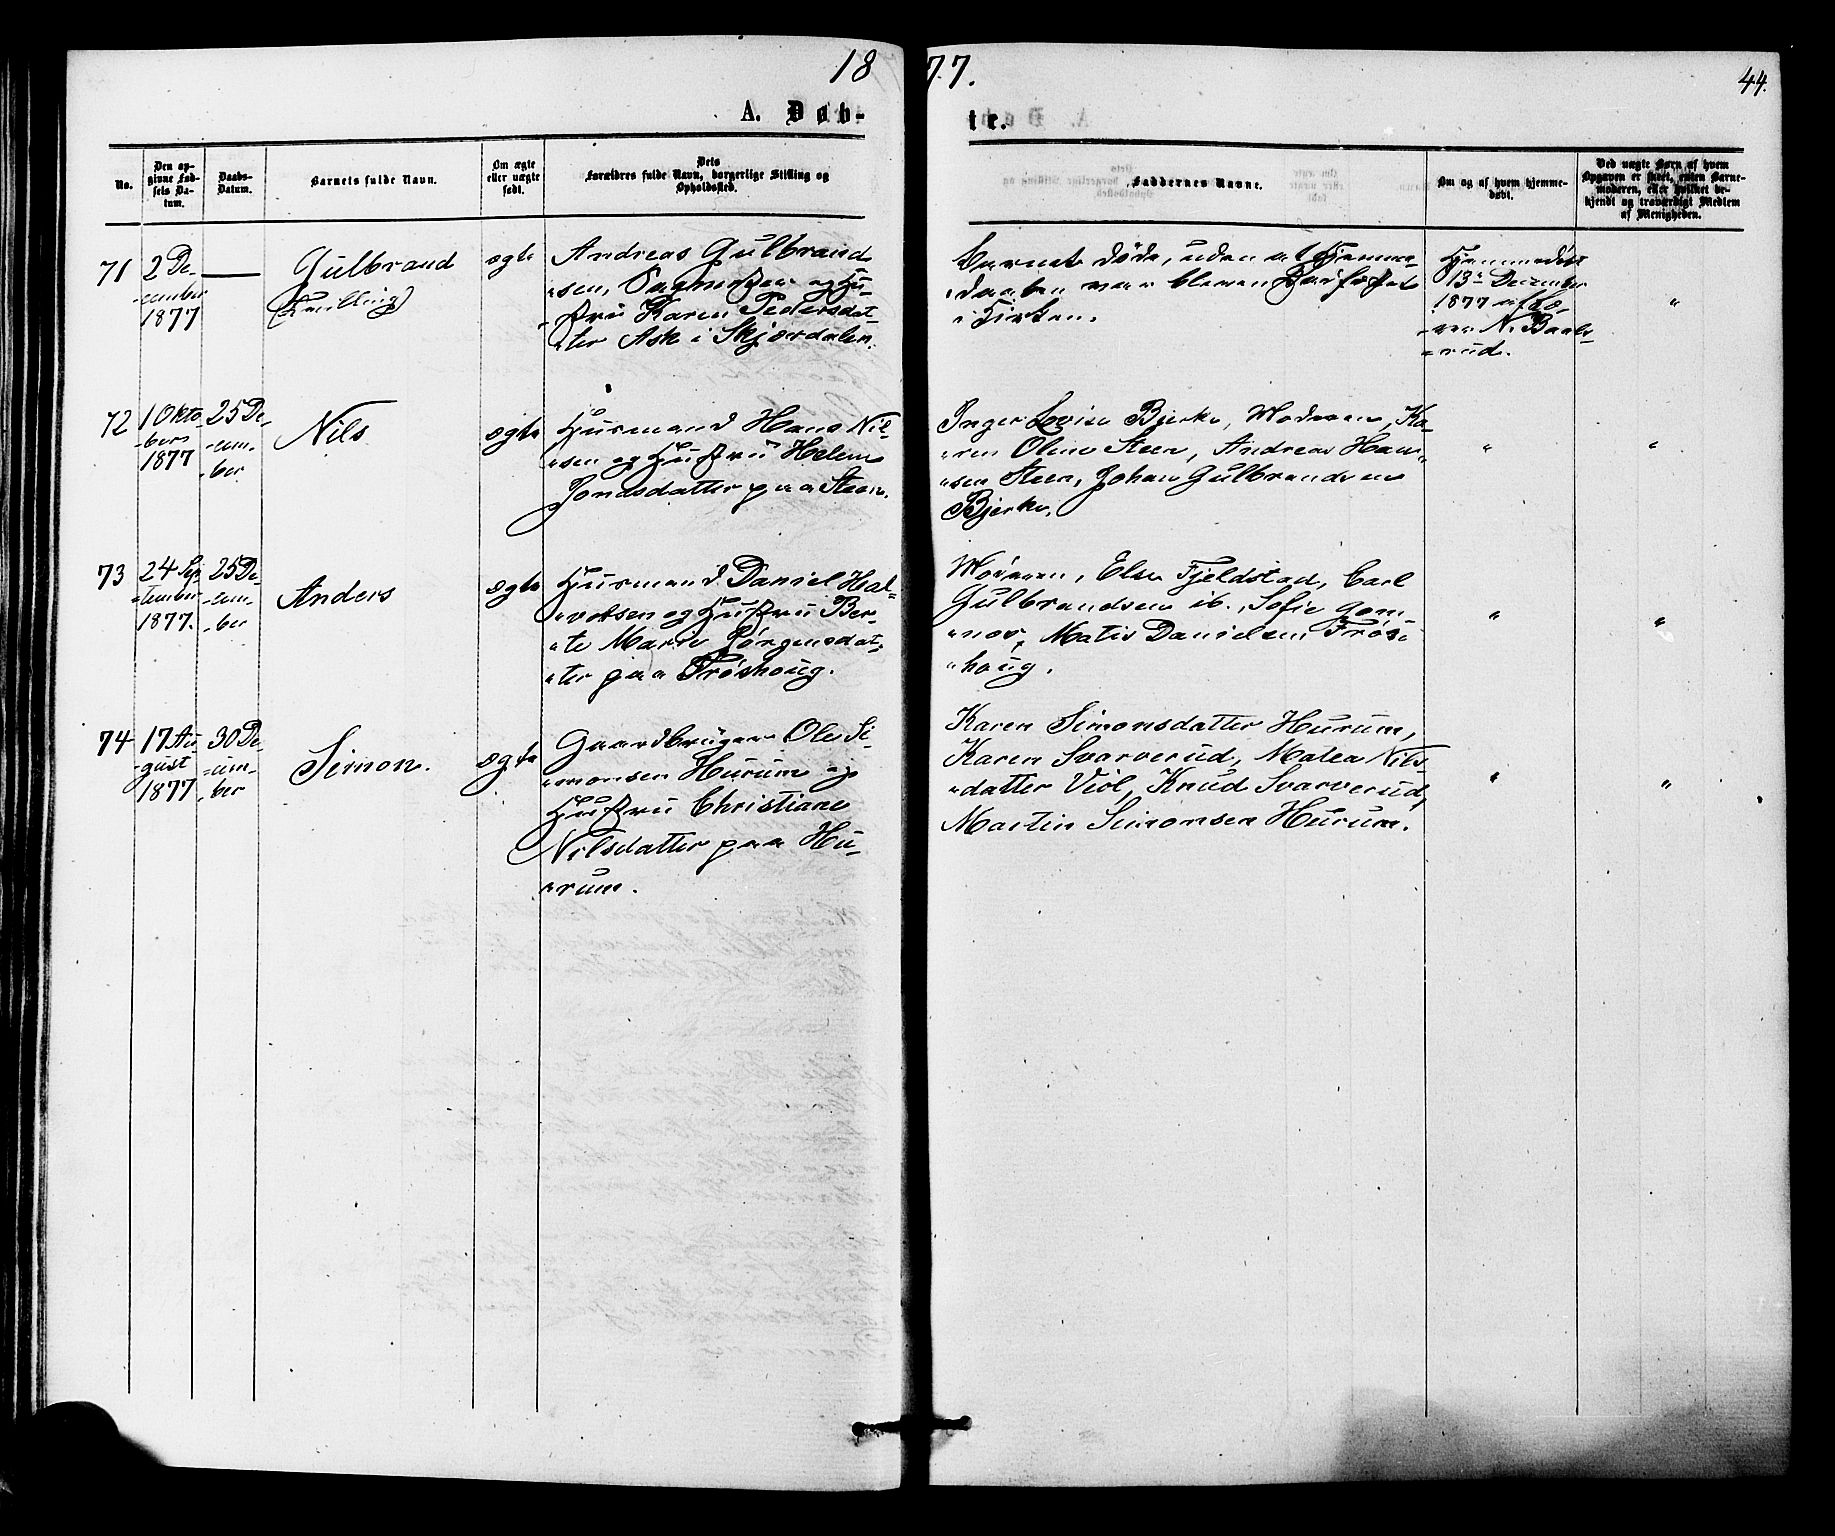 18 77.
44.
A. Døb- te.
No.
Den opgivne Fødsels Datum.
Daabs-Datum.
Barnets fulde Navn.
Om ægte eller uægte født.
Dets Forældres fulde Navn, borgerlige Stilling og Opholdssted.
Faddernes Navne.
Om og af hvem hjemmedøbt.
Ved uægte Børn af hvem Opgaven er skeet, enten Barnemoderen, eller hvilket bekjendt og troværdigt Medlem af Menigheden.
71
2 De-
-cember
1877
Gulbrand
(Tvilling)
ægte
Andreas Gulbrand-
-sen, og Hu-
-stru Karen Pedersdat-
-ter Ask i Skjærdalen.
Barnet døde, uden at Hjemme-
-daaben var bleven stadfæstet
i Kirken.
Hjemmedøbt
13de December
1877 af Læ-
-rer N. Baals-
-rud.
"
72
1 Okto-
-bers
1877
25 De-
-cem-
-ber
Nils
ægte
Husmand Hans Nil-
-sen og Hustru Helene
Jonsdatter paa Steen.
Inger Lovise Bjerke, Moderen, Ka-
-ren Oline Steen, Andreas Han-
-sen Steen, Johan Gulbrandsen
Bjerke.
"
"
73
24 Sep-
-tember
1877.
25 De-
-cem-
-ber
Anders
ægte
Husmand Daniel Hal-
-vorsen og Hustru Ber-
-te Marie Jörgensdat-
-ter paa Fröshoug.
Moderen, Else Fjeldstad, Carl
Gulbrandsen ib., Sofie Gom-
-nor, Matis Danielsen Frös-
-houg.
"
"
74
17 Au-
-gust
1877
30 De-
-cem-
-ber
Simon.
ægte
Gaardbruger Ole Si-
-monsen Hurum og
Hustru Christiane
Nilsdatter paa Hu-
-rum.
Karen Simonsdatter Hurum,
Karen Svarverud, Malea Nils-
-datter Viöl, Knud Svarverud,
Martin Simonsen Hurum.
"
"